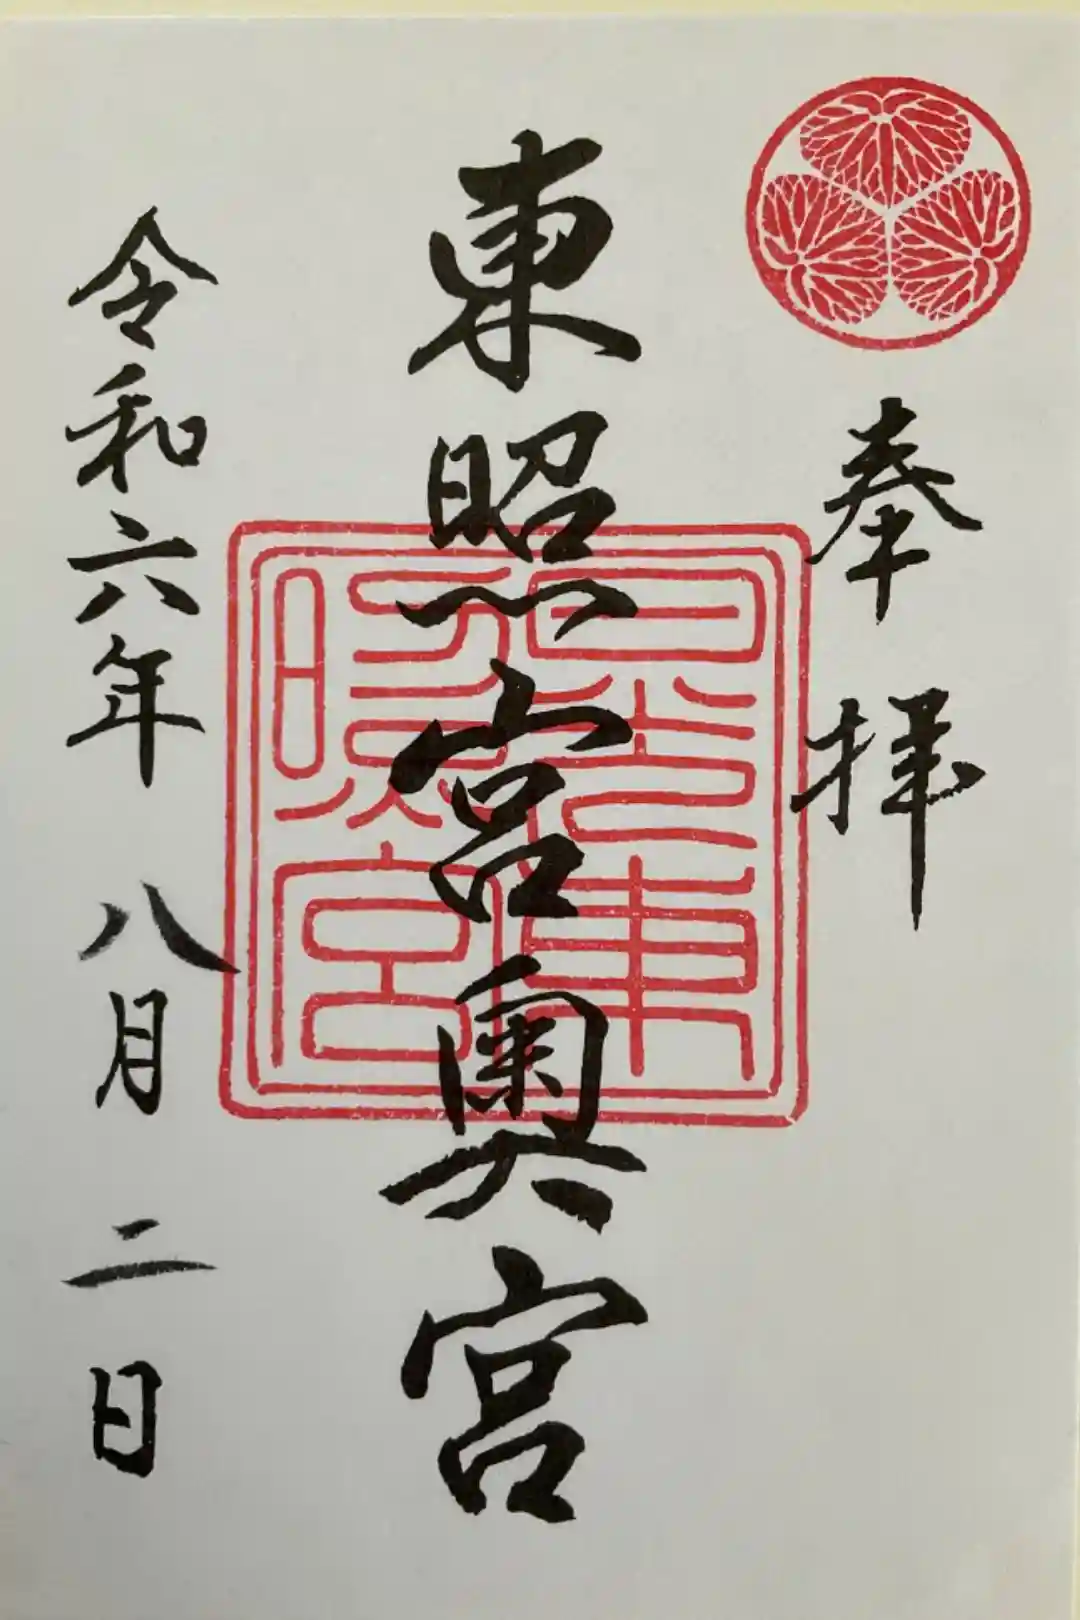 奉拝
東照宮奥宮
日光東照宮
令和六年八月二日